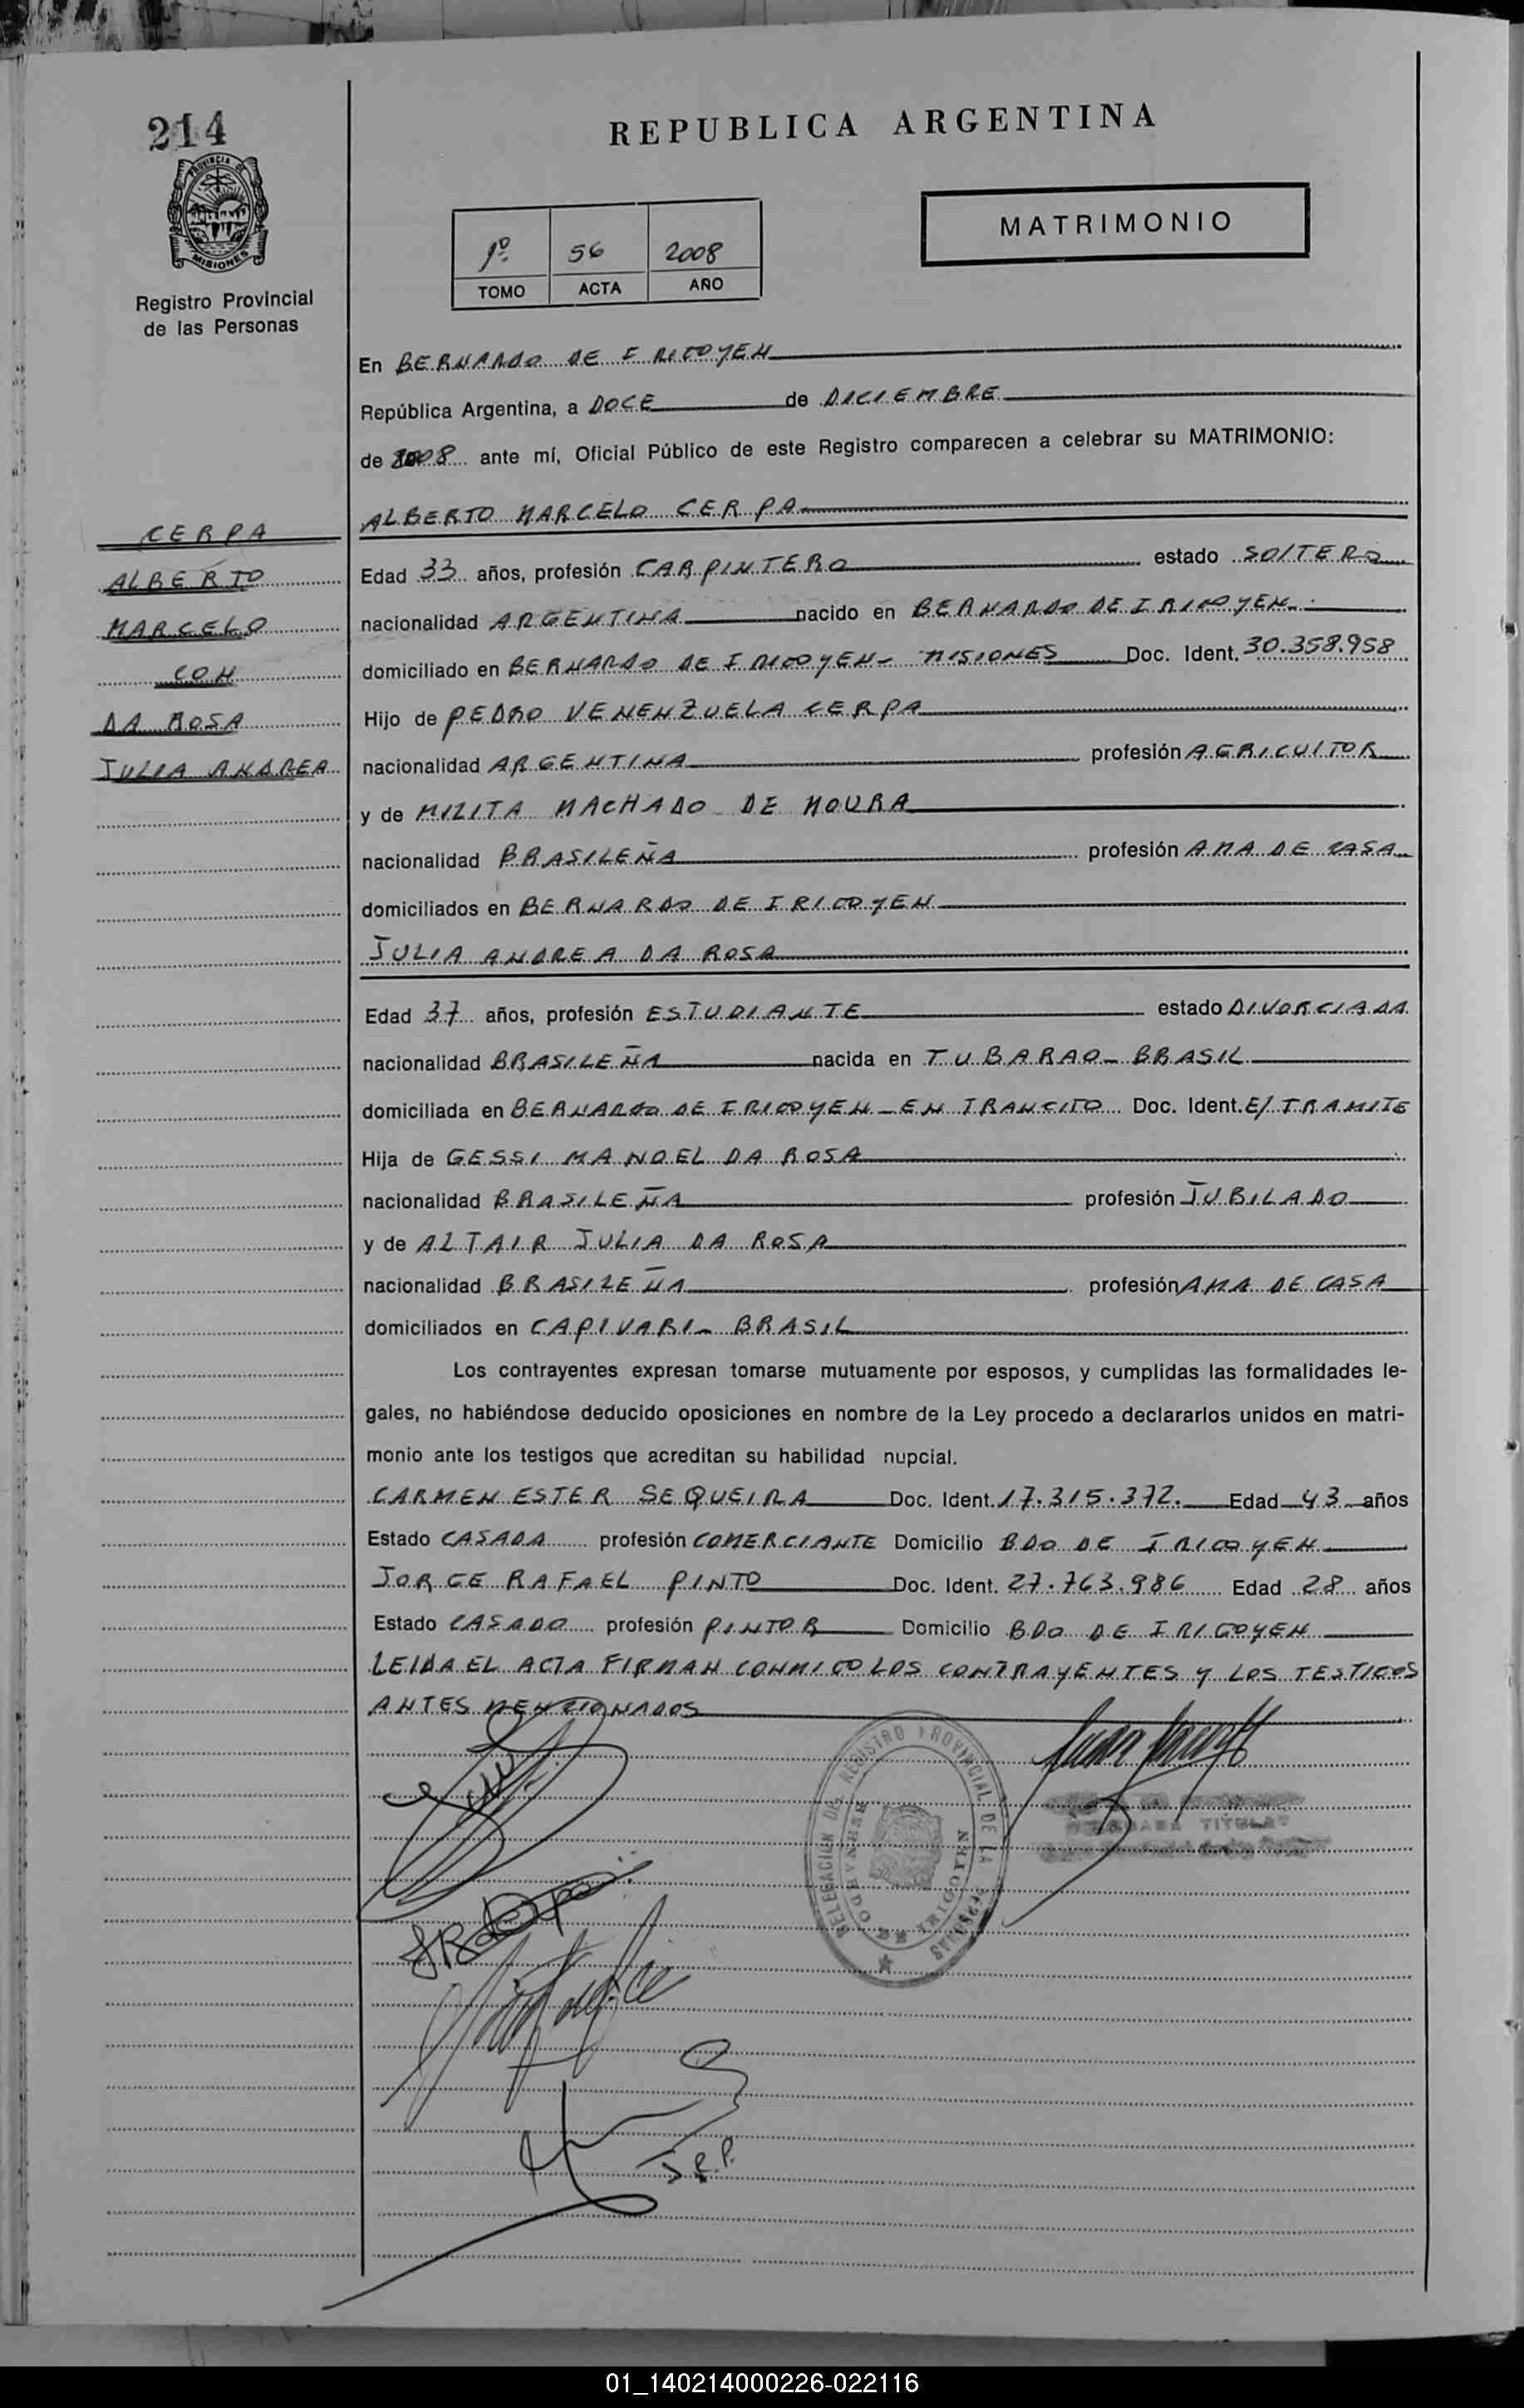 214
PROVINCIA DE
MISIONES
Registro Provincial
de las Personas
REPUBLICA ARGENTINA
MATRIMONIO
1º 56 2008
TOMO ACTA AÑO
En BERNARDO DE IRIGOYEN
República Argentina, a DOCE de DICIEMBRE
de 2008 ante mí, Oficial Público de este Registro comparecen a celebrar su MATRIMONIO:
CERPA
ALBERTO
MARCELO
CON
DA ROSA
JULIA ANDREA
ALBERTO MARCELO CERPA
Edad 33 años, profesión CARPINTERO estado SOLTERO
nacionalidad ARGENTINA nacido en BERNARDO DE IRIGOYEN
domiciliado en BERNARDO DE IRIGOYEN - MISIONES Doc. Ident. 30.358.958
Hijo de PEDRO VENENZUELA CERPA
nacionalidad ARGENTINA profesión AGRICULTOR
y de MILITA MACHADO DE MOURA
nacionalidad BRASILEÑA profesión AMA DE CASA
domiciliados en BERNARDO DE IRIGOYEN
JULIA ANDREA DA ROSA
Edad 37 años, profesión ESTUDIANTE estado DIVORCIADA
nacionalidad BRASILEÑA nacida en TUBARAO - BRASIL
domiciliada en BERNARDO DE IRIGOYEN - EN TRANCITO Doc. Ident. E/ TRAMITE
Hija de GESSI MANOEL DA ROSA
nacionalidad BRASILEÑA profesión JUBILADO
y de ALTAIR JULIA DA ROSA
nacionalidad BRASILEÑA profesión AMA DE CASA
domiciliados en CAPIVARI - BRASIL
Los contrayentes expresan tomarse mutuamente por esposos, y cumplidas las formalidades le-
gales, no habiéndose deducido oposiciones en nombre de la Ley procedo a declararlos unidos en matri-
monio ante los testigos que acreditan su habilidad nupcial.
CARMEN ESTER SEQUEIRA Doc. Ident. 17.315.372. Edad 43 años
Estado CASADA profesión COMERCIANTE Domicilio BDO DE IRIGOYEN
JORGE RAFAEL PINTO Doc. Ident. 27.763.986 Edad 28 años
Estado CASADO profesión PINTOR Domicilio BDO DE IRIGOYEN
LEIDA EL ACTA FIRMAN CONMIGO LOS CONTRAYENTES Y LOS TESTIGOS
ANTES MENCIONADOS
DELEGACION DEL REGISTRO PROVINCIAL DE LAS PERSONAS
BERNARDO DE IRIGOYEN
TITULAR
J.R.P.
01_140214000226-022116